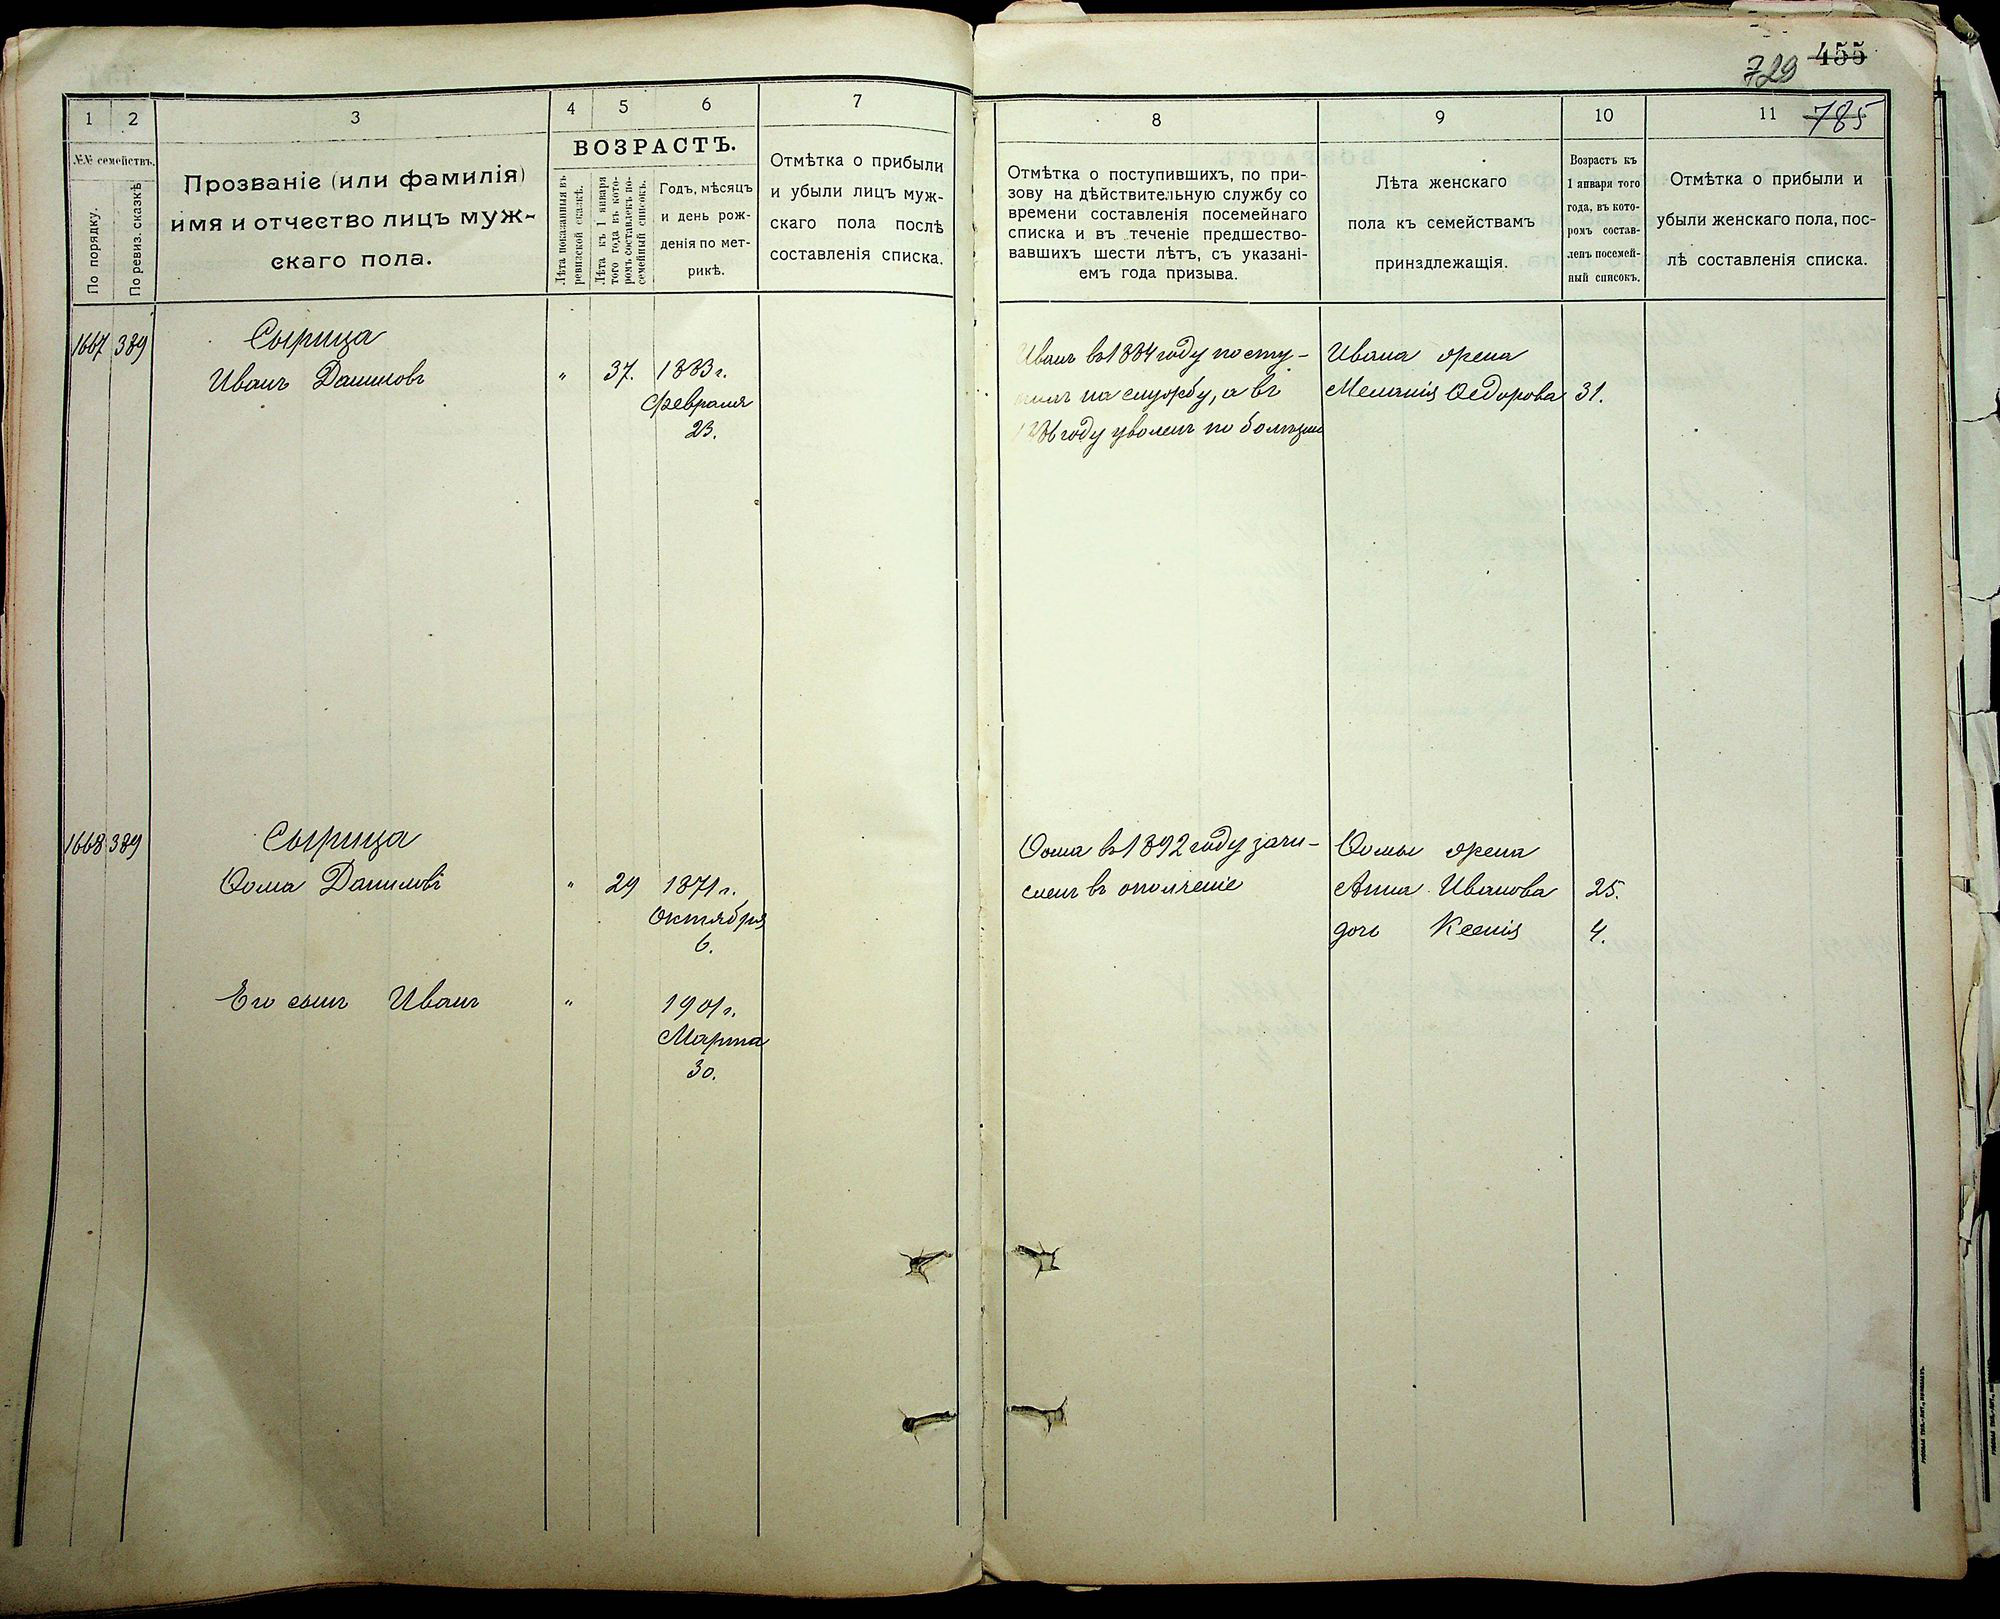 455
729
785
1
2
3
4
5
6
7
8
9
10
11
№№ семействъ.
По порядку.
По ревиз. сказкѣ
Прозваніе (или фамилія)
имя и отчество лицъ муж-
скаго пола.
ВОЗРАСТЪ.
Лѣта показанныя въ
ревизской сказкѣ.
Лѣта къ 1 января
того года въ кото-
ромъ составленъ по-
семейный списокъ.
Годъ, мѣсяцъ
и день рож-
денія по мет-
рикѣ.
Отмѣтка о прибыли
и убыли лицъ муж-
скаго пола послѣ
составленія списка.
Отмѣтка о поступившихъ, по при-
зову на дѣйствительную службу со
времени составленія посемейнаго
списка и въ теченіе предшество-
вавшихъ шести лѣтъ, съ указані-
емъ года призыва.
Лѣта женскаго
пола къ семействамъ
принздлежащія.
Возрастъ къ
1 января того
года, въ кото-
ромъ состав-
ленъ посемей-
ный списокъ.
Отмѣтка о прибыли и
убыли женскаго пола, пос-
лѣ составленія списка.
1667 389
Сырица
Иванъ Даниловъ
" 37. 1883 г.
Февраля
23.
Иванъ въ 1884 году посту-
пилъ на службу, а въ
1886 году уволенъ по болѣзни
Ивана жена
Меланія Ѳедорова 31.
1668 389
Сырица
Ѳома Даниловъ
" 29 1871 г.
Октября
6.
Его сынъ Иванъ
" 1901 г.
Марта
30.
Ѳома въ 1892 году зачи-
сленъ въ ополченіе
Ѳомы жена
Анна Иванова 25.
дочь Ксенія 4.